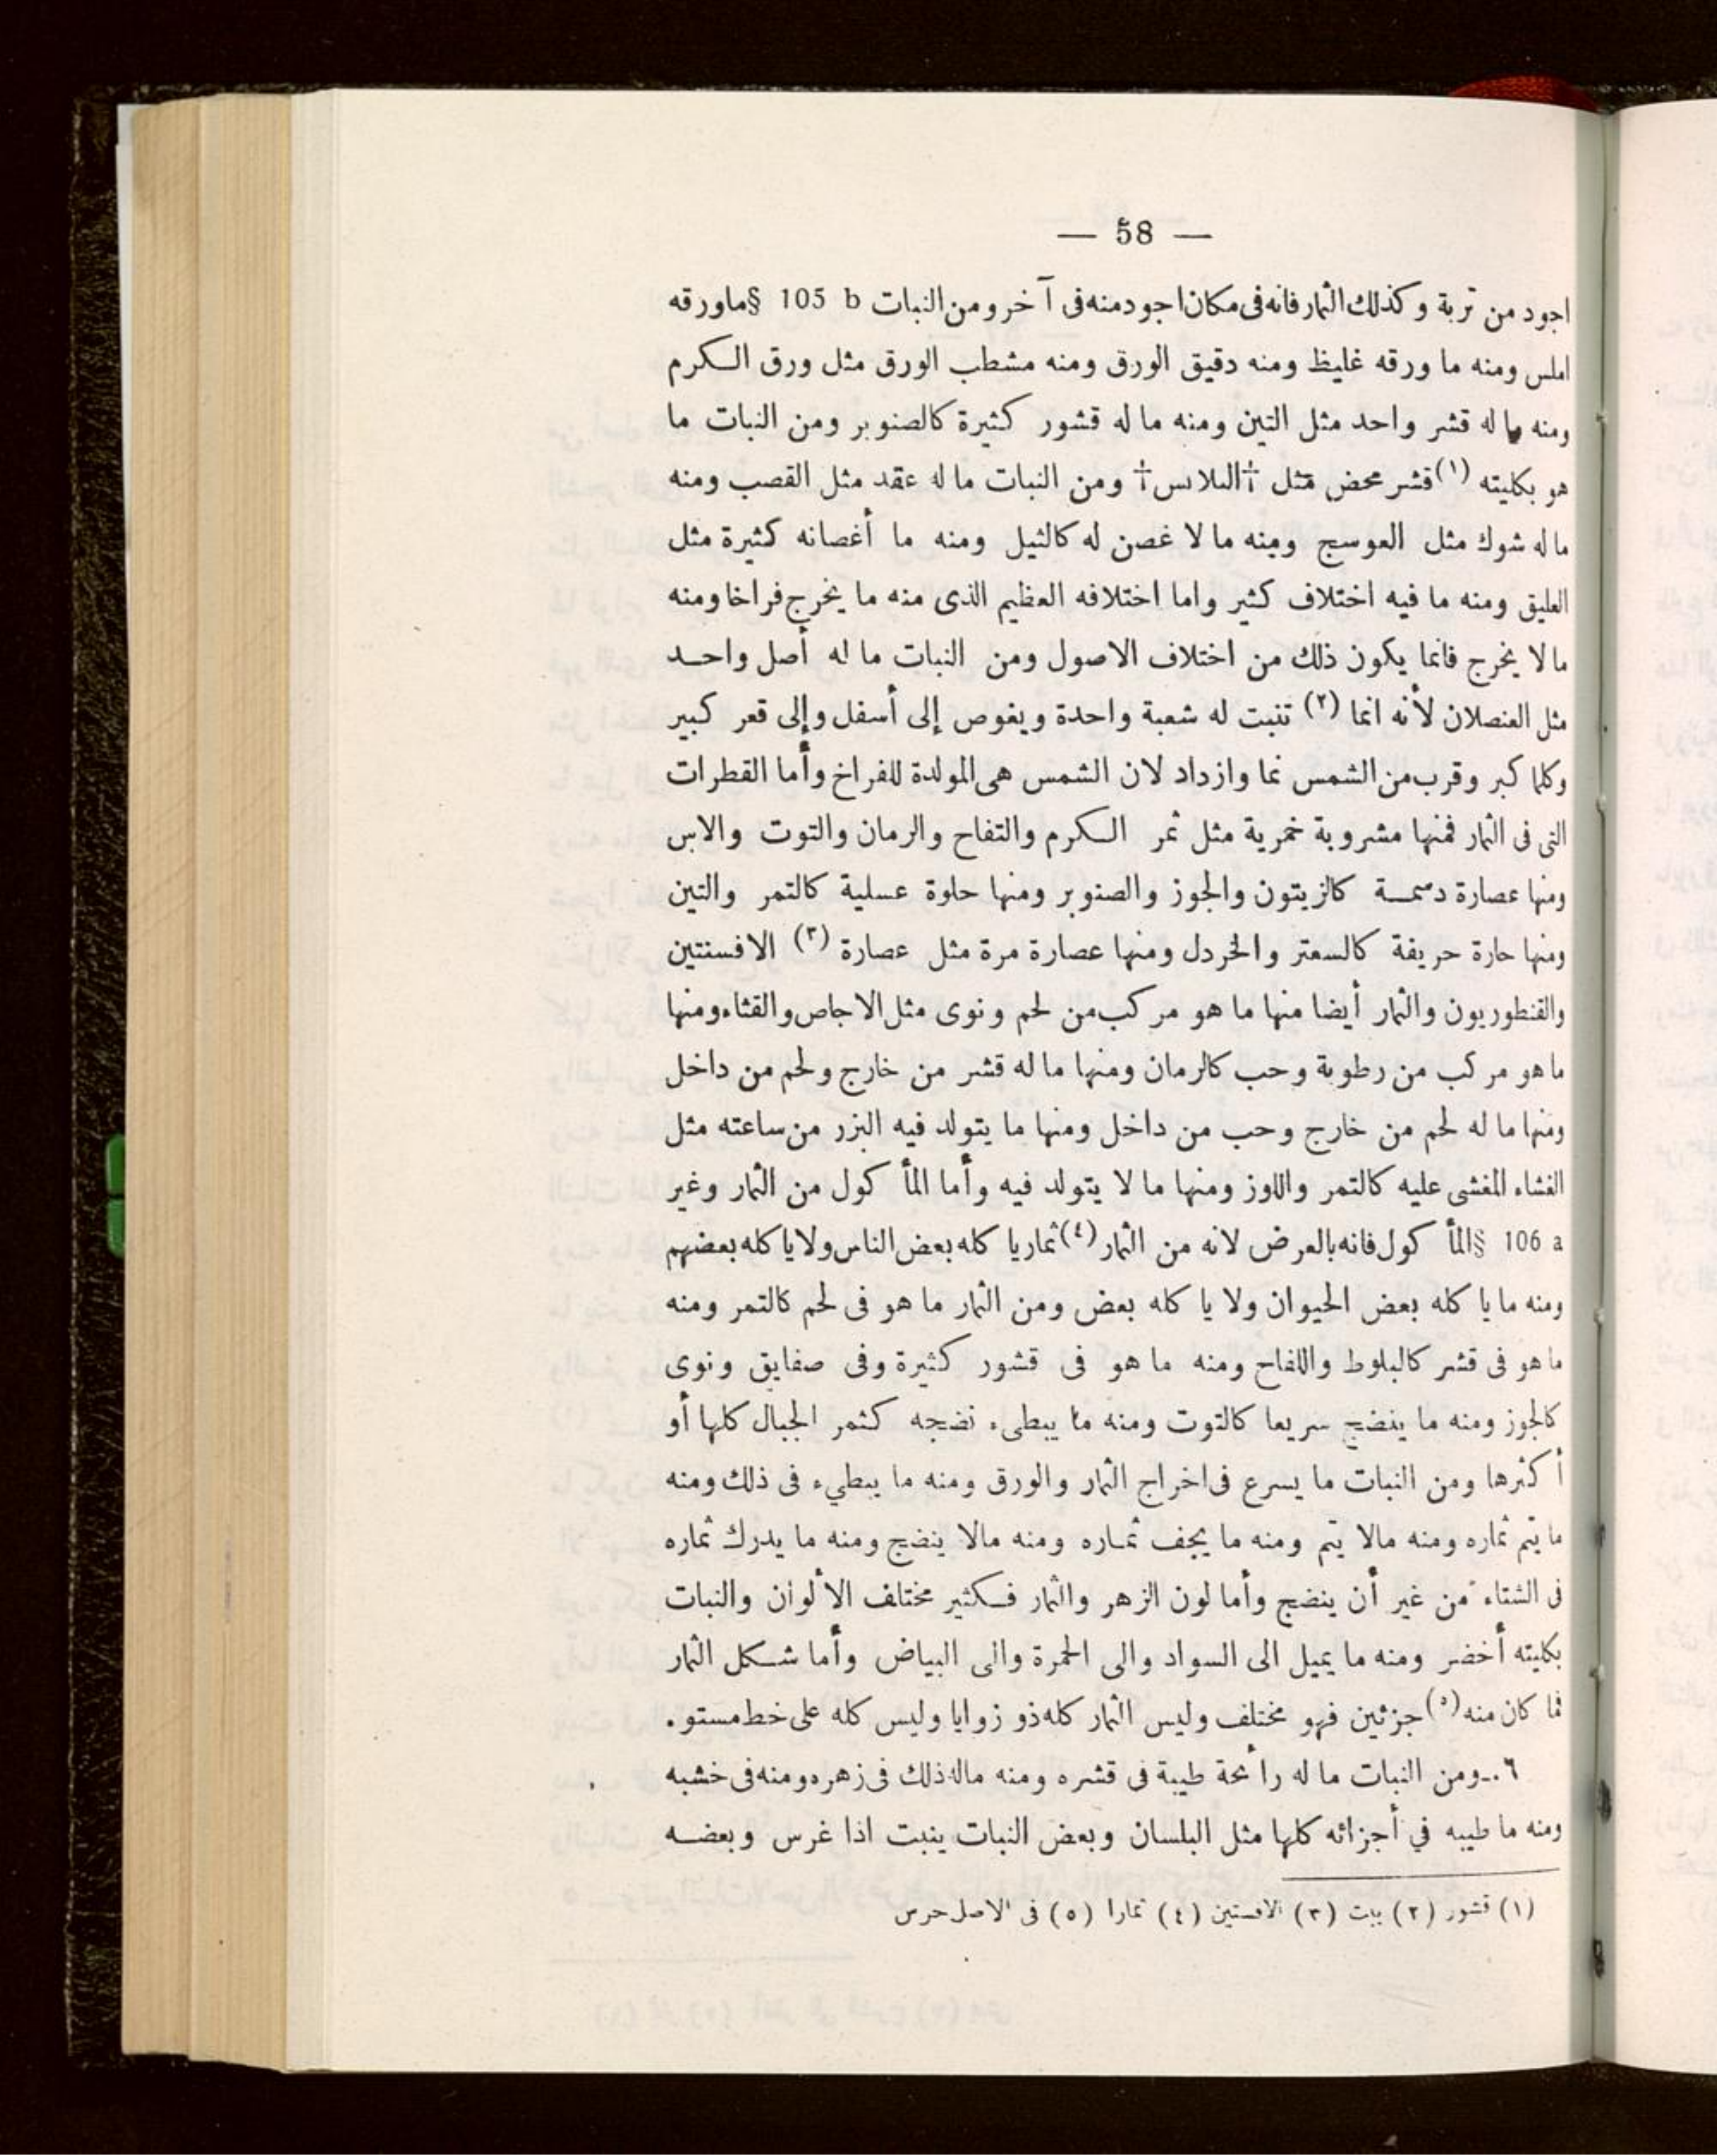 — 58 —
اجود من تربة وكذلك الثمار فانه فى مكان اجود منه فى آخر ومن النبات 105 b §ما ورقه
املس ومنه ما ورقه غليظ ومنه دقيق الورق ومنه مشطب الورق مثل ورق الكرم
ومنه ما له قشر واحد مثل التين ومنه ما له قشور كثيرة كالصنوبر ومن النبات ما
هو بكليته (١) قشر محض مثل †البلاىس† ومن النبات ما له عقد مثل القصب ومنه
ما له شوك مثل العوسج ومنه ما لا غصن له كالثيل ومنه ما أغصانه كثيرة مثل
العليق ومنه ما فيه اختلاف كثير واما اختلافه العظيم الذى منه ما يخرج فراخا ومنه
ما لا يخرج فانما يكون ذلك من اختلاف الاصول ومن النبات ما له أصل واحد
مثل العنصلان لأنه انما (٢) تنبت له شعبة واحدة ويغوص إلى أسفل وإلى قعر كبير
وكلما كبر وقرب من الشمس نما وازداد لان الشمس هى المولدة للفراخ وأما القطرات
التى فى الثمار فمنها مشروبة خمرية مثل ثمر الكرم والتفاح والرمان والتوت والاس
ومنها عصارة دسمة كالزيتون والجوز والصنوبر ومنها حلوة عسلية كالتمر والتين
ومنها حارة حريفة كالسعتر والخردل ومنها عصارة مرة مثل عصارة (٣) الافسنتين
والقنطوريون والثمار أيضا منها ما هو مركب من لحم ونوى مثل الاجاص والقثاء ومنها
ما هو مركب من رطوبة وحب كالرمان ومنها ما له قشر من خارج ولحم من داخل
ومنها ما له لحم من خارج وحب من داخل ومنها ما يتولد فيه البزر من ساعته مثل
الغشاء المغشى عليه كالتمر واللوز ومنها ما لا يتولد فيه وأما المأكول من الثمار وغير
106 a §المأكول فانه بالعرض لانه من الثمار (٤) ثمار ياكله بعض الناس ولا ياكله بعضهم
ومنه ما ياكله بعض الحيوان ولا ياكله بعض ومن الثمار ما هو فى لحم كالتمر ومنه
ما هو فى قشر كالبلوط واللفاح ومنه ما هو فى قشور كثيرة وفى صفايق ونوى
كالجوز ومنه ما ينضج سريعا كالتوت ومنه ما يبطىء نضجه كثمر الجبال كلها أو
أكثرها ومن النبات ما يسرع فى اخراج الثمار والورق ومنه ما يبطيء فى ذلك ومنه
ما يتم ثماره ومنه مالا يتم ومنه ما يجف ثماره ومنه مالا ينضج ومنه ما يدرك ثماره
فى الشتاء من غير أن ينضج وأما لون الزهر والثمار فكثير مختلف الألوان والنبات
بكليته أخضر ومنه ما يميل الى السواد والى الحمرة والى البياض وأما شكل الثمار
فما كان منه (٥) جزئين فهو مختلف وليس الثمار كله ذو زوايا وليس كله على خط مستو.
٦.-ومن النبات ما له رائحة طيبة فى قشره ومنه ماله ذلك فى زهره ومنه فى خشبه
ومنه ما طيبه في أجزائه كلها مثل البلسان وبعض النبات ينبت اذا غرس وبعضه
(١) قشور (٢) ىبت (٣) الافستين (٤) ثمارا (٥) فى الاصل حرس